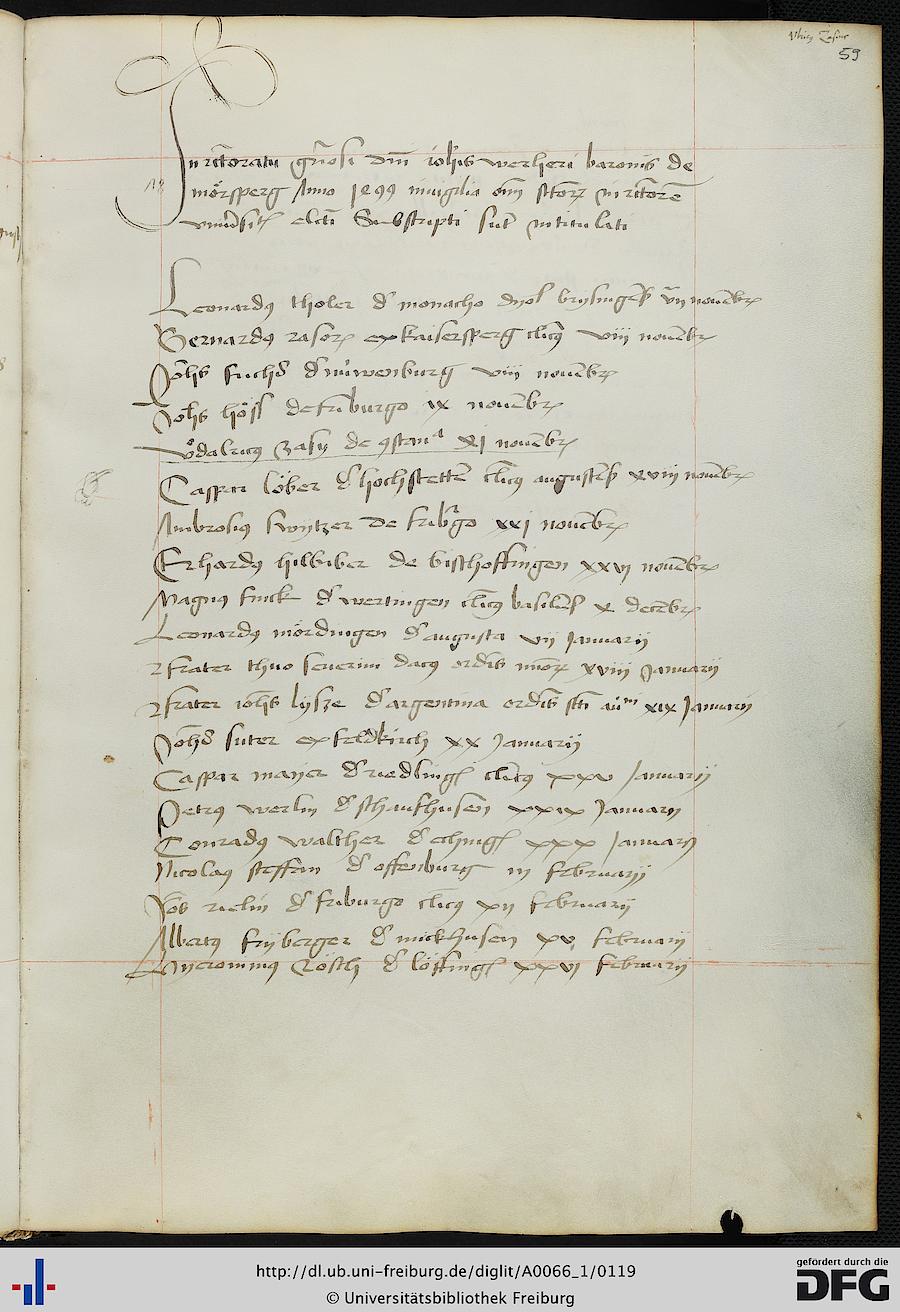 Ulricus Zasius
59
In rectoratu generosi domini Johannis Werheri baronis de
mörsperg Anno 1499 in vigilia omnium sanctorum in rectorem
universitatis electi Subscripti sunt intitulati
Leonardus tholer de monacho dyoc frysingensis vij novembris
Bernardus rasoris ex kaisersperg clericus viii novembris
Johannes fuchs de nüwenburg viii novembris
Johannes höss de friburgo ix novembris
Uodalricus zasy de constantia xi novembris
Caspar löber de hochstetten clericus augustensis xviii novembris
Ambrosius kyntzer de friburgo xxi novembris
Erhardus hilwiber de bischoffingen xxvi novembris
Magnus finck de wertingen clericus x decembris
Leonardus mördingen de augusta vij Januarij
frater thuo severini dacus ordinis minorum xviii Januarij
frater iohannes lysze de argentina ordinis sancti xix Januarij
Johannes suter ex feldkirch xx Januarij
Caspar mayer de riedlingen clericus xxv Januarij
Petrus werlin de schaufhusen xxix Januarij
Conradus walther de echingen xxx Januarij
Nicolaus steffan de offenburg iij februarij
Johannes rielin de friburgo clericus xij februarij
Albertus fryberger de mickhusen xv februarij
Hyeronimus Rösch de löffingen xxvi februarij
http://dl.ub.uni-freiburg.de/diglit/A0066_1/0119
© Universitätsbibliothek Freiburg
gefördert durch die
DFG